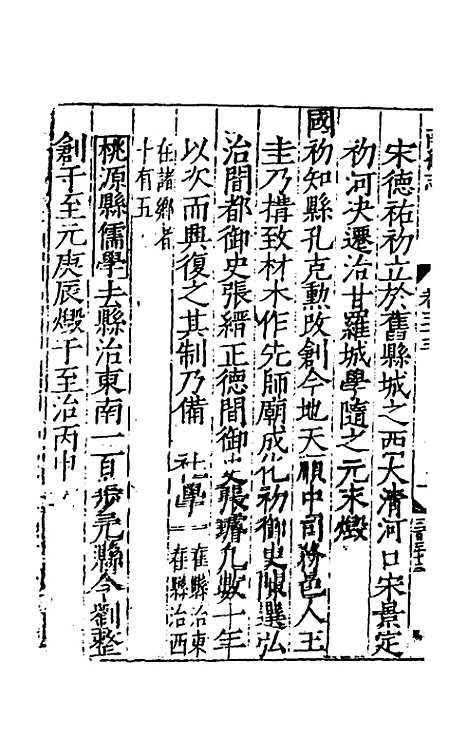 宋德祐初立於舊縣城之西大清河口宋景定
初河决遷治甘羅城學隨之元末燬
國初知縣孔克勳改創今地天順中司務邑人王
圭乃搆致材木作先師廟成化初御史陳選弘
治間都御史張縉正德間御史張璿凡數十年
以次而興復之其制乃備 社學 一在縣治東一在縣治西
在諸鄉者
十有五
桃源縣儒學去縣治東南一百步元縣令劉整
創于至元庚辰燬于至治丙申